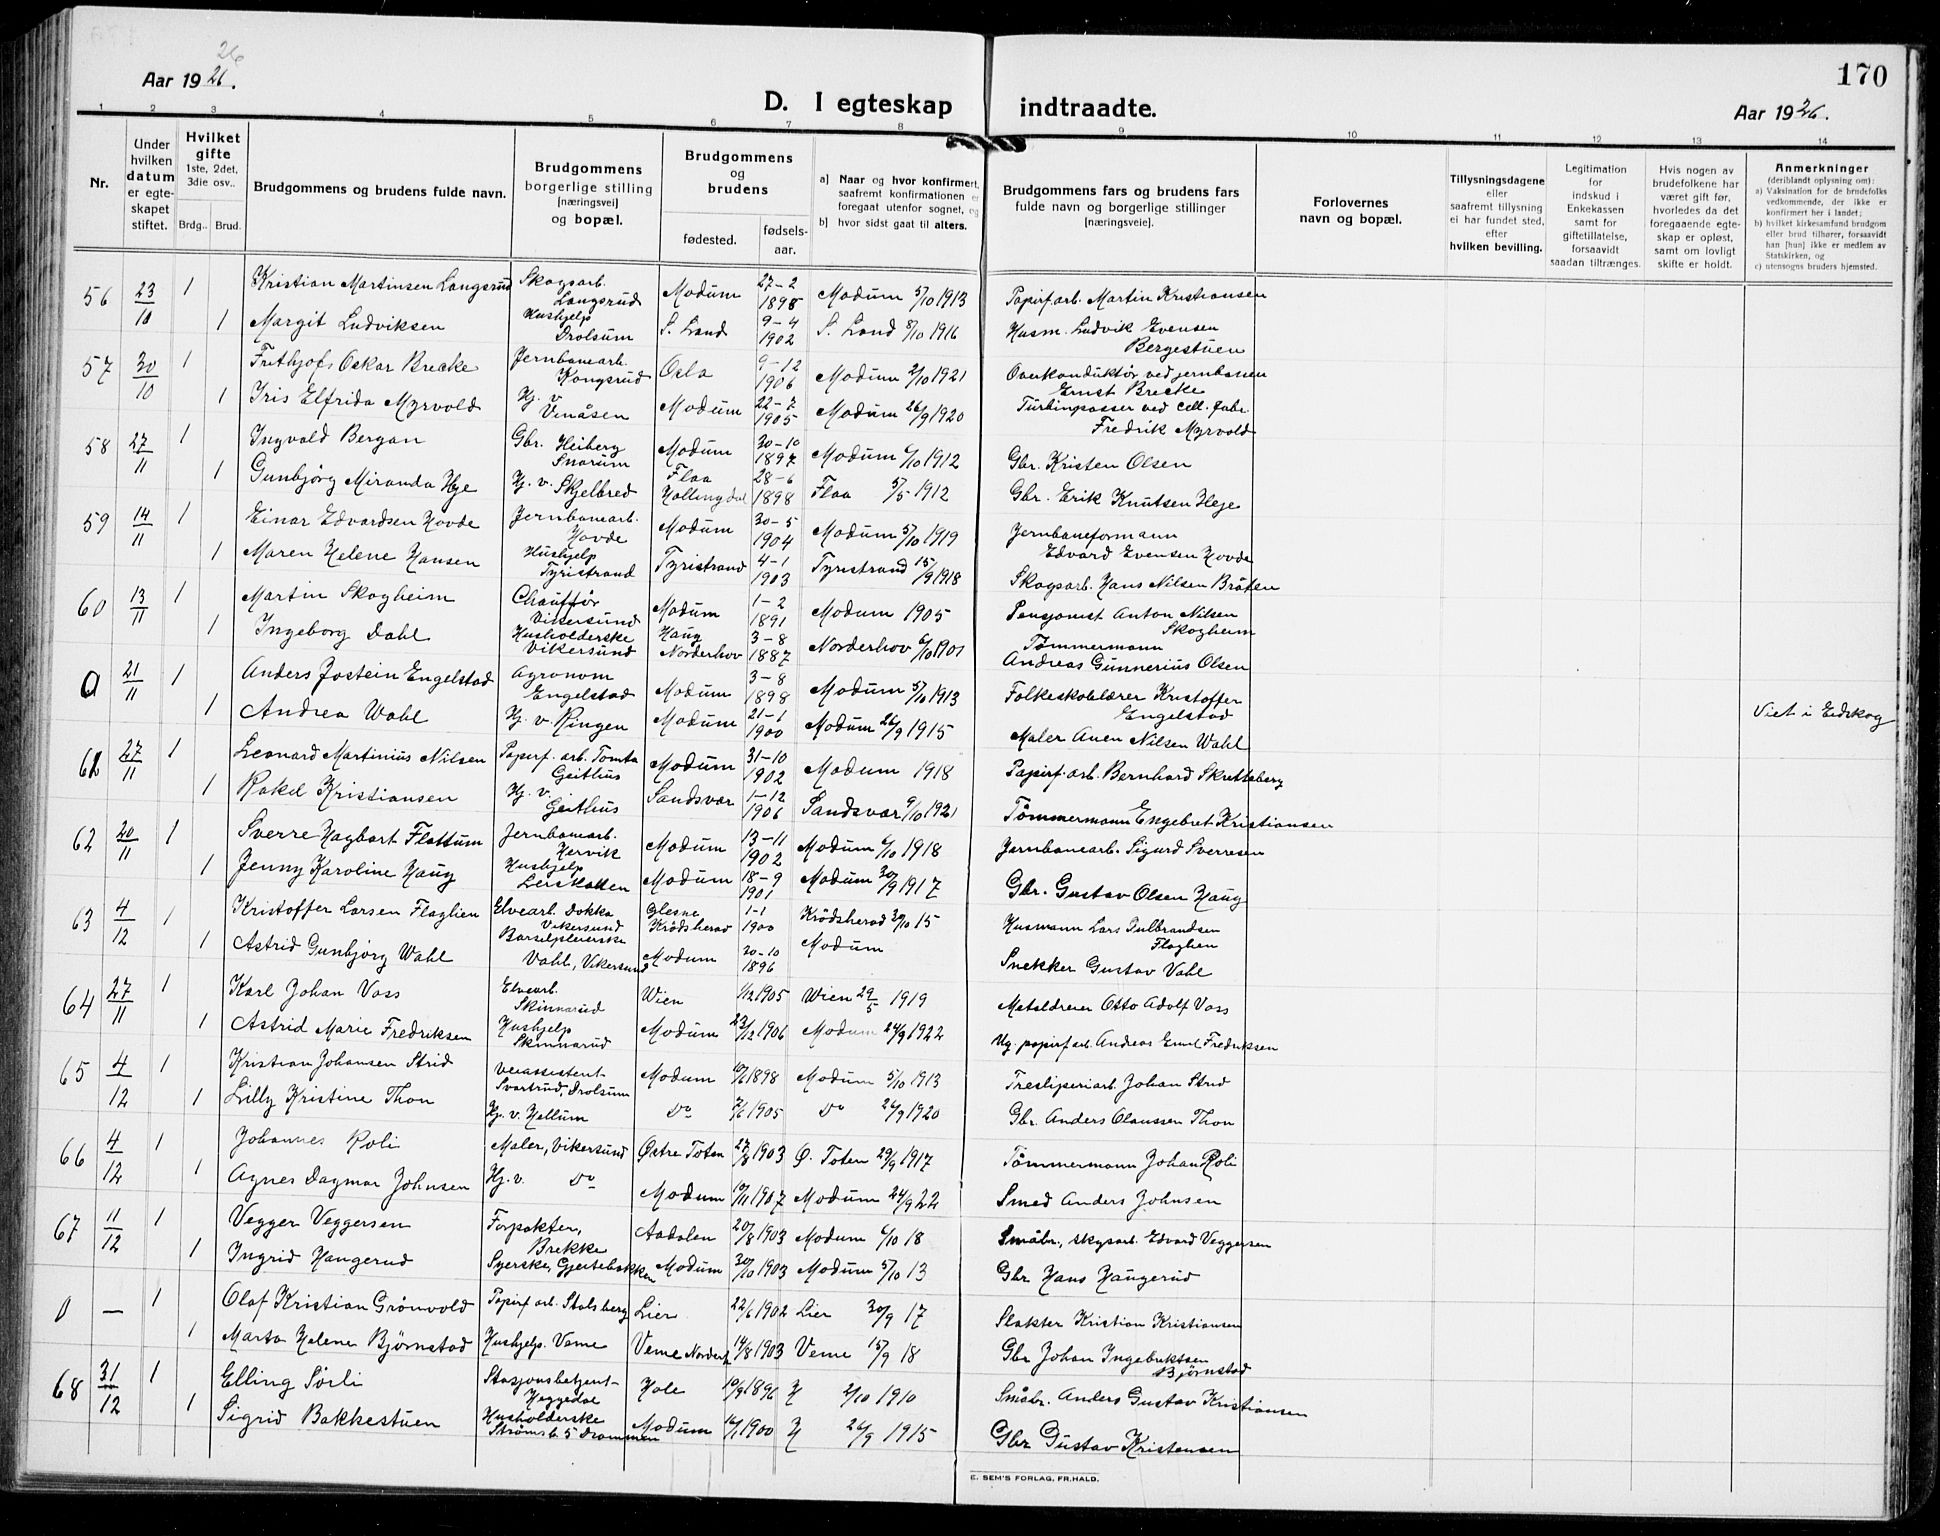 26
Aar 1926.
D. I egteskap indtraadte.
Aar 1926.
170
1 2 3 4 5 6 7 8 9 10 11 12 13 14
Nr.
Under hvilken datum er egteskapet stiftet.
Hvilket gifte
1ste, 2det, 3die osv..
Brdg.. Brud.
Brudgommens og brudens fulde navn.
Brudgommens borgerlige stilling [næringsvei] og bopæl.
Brudgommens og brudens
fødested.
fødsels-aar.
a) Naar og hvor konfirmert, saafremt konfirmationen er foregaat utenfor sognet, og
b) hvor sidst gaat til alters.
Brudgommens fars og brudens fars fulde navn og borgerlige stillinger [næringsveie].
Forlovernes navn og bopæl.
Tillysningsdagene eller saafremt tillysning ei har fundet sted, efter hvilken bevilling.
Legitimation for indskud i Enkekassen samt for giftetillatelse, forsaavidt saadan tiltrænges.
Hvis nogen av brudefolkene har været gift før, hvorledes da det foregaaende egteskap er opløst, samt om lovligt skifte er holdt.
Anmerkninger (deriblandt oplysning om):
a) Vaksination for de brudefolks vedkommende, der ikke er konfirmert her i landet;
b) hvilket kirkesamfund brudgom eller brud tilhører, forsaavidt han [hun] ikke er medlem av Statskirken, og
c) utensogns bruders hjemsted.
56 23/10 1 Kristian Martinsen Langsrud Skogsarb. Langsrud Modum 27-2 1898 Modum 5/10 1913 Papirfarb. Martin Kristiansen
1 Margit Ludviksen Hushjelp Drolsum S. Land 9-4 1902 S. Land 8/10 1916 Husm. Ludvik Evensen Bergestuen
57 30/10 1 Frithjof Oskar Brecke Jernbanearb. Kongsrud Oslo 9-12 1906 Modum 2/10 1921 Overkonduktør ved jernbanen Ernst Brecke
1 Iris Elfrida Myrvold Hj. v. Venåsen Modum 22-7 1905 Modum 26/9 1920 Turbinpasser ved cell. fabr. Fredrik Myrvold
58 27/11 1 Ingvald Bergan Gbr. Heiberg Snarum Modum 30-10 1897 Modum 6/10 1912 Gbr. Kristen Olsen
1 Gunbjørg Miranda Heje Hj. v. Skjelbred Flaa Hallingdal 28-6 1898 Flaa 5/5 1912 Gbr. Erik Knutsen Heje
59 14/11 1 Einar Edvardsen Hovde Jernbanearb. Hovde Modum 30-5 1904 Modum 5/10 1919 Jernbaneformann Edvard Evensen Hovde
1 Maren Helene Hansen Hushjelp Tyristrand Tyristrand 4-1 1903 Tyristrand 15/9 1918 Skogsarb. Hans Nilsen Bråten
60 13/11 1 Martin Skogheim Chauffør Vikersund Modum 1-2 1891 Modum 1905 Pensjonist Anton Nilsen Skogheim
1 Ingeborg Dahl Husholderske Vikersund Haug Norderhov 3-8 1887 Norderhov 6/10 1901 Tømmermann Andreas Gunnerius Olsen
0 21/11 1 Anders Jostein Engelstad Agronom Engelstad Modum 3-8 1898 Modum 5/10 1913 Folkeskolelærer Kristoffer Engelstad
1 Andrea Wahl Hj. v. Ringen Modum 21-1 1900 Modum 26/9 1915 Maler Auen Nilsen Wahl Viet i Eidskog
61 27/11 1 Leonard Martinius Nilsen Papirf. arb. Tomta Geithus Modum 31-10 1902 Modum 1918 Papirf. arb. Bernhard Skretteberg
1 Rakel Kristiansen Hj. v. Geithus Sandsvær 1-12 1906 Sandsvær 9/10 1921 Tømmermann Engebret Kristiansen
62 20/11 1 Sverre Hagbart Flattum Jernbanearb. Hervik Modum 13-11 1902 Modum 6/10 1918 Jernbanearb. Sigurd Sverresen
1 Jenny Karoline Haug Hushjelp Leiskollen Modum 18-9 1901 Modum 30/9 1917 Gbr. Gustav Olsen Haug
63 4/12 1 Kristoffer Larsen Flaglien Elvearb. Dokka Vikersund Glesne Krødsherad 1-1 1900 Krødsherad 30/10 15 Husmann Lars Gulbrandsen Flaglien
1 Astrid Gunbjørg Wahl Barselpleierske Vahl, Vikersund Modum 30-10 1896 Modum Snekker Gustav Vahl
64 27/11 1 Karl Johan Voss Elvearb. Skinnarud Wien 1/12 1905 Wien 29/5 1919 Metaldreier Otto Adolf Voss
1 Astrid Marie Fredriksen Hushjelp Skinnarud Modum 23/12 1906 Modum 24/9 1922 Ug. papirf arb. Andreas Emil Fredriksen
65 4/12 1 Kristian Johansen Strid Veiassistent Svartrud, Drolsum Modum 10/6 1898 Modum 5/10 1913 Tresliperiarb. Johan Strid
1 Lilly Kristine Thon Hj. v. Hellum Do 7/6 1905 Do 26/9 1920 Gbr. Anders Olaussen Thon
66 4/12 1 Johannes Roli Maler, Vikersund Østre Toten 27/8 1903 Ø. Toten 29/9 1917 Tømmermann Johan Roli
1 Agnes Dagmar Johnsen Hj. v. Do Modum 10/11 1907 Modum 24/9 22 Smed Anders Johnsen
67 11/12 1 Vegger Veggersen Forpakter, Brekke Aadalen 20/8 1903 Modum 6/10 18 Småbr., skogsarb. Edvard Veggersen
1 Ingrid Haugerud Syerske, Gjeitebakken Modum 30/10 1903 Modum 5/10 13 Gbr Hans Haugerud
0 — 1 Olaf Kristian Grønvold Papirf arb. Stalsberg Lier 22/6 1902 Lier 30/9 17 Slakter Kristian Kristiansen
1 Marta Helene Bjørnstad Hushjelp. Veme Veme Norderh 14/8 1903 Veme 15/9 18 Gbr Johan Ingebriktsen Bjørnstad
68 31/12 1 Elling Sørli Stasjonsbetjent Heggedal Hole 10/9 1896 H 2/10 1910 Småbr. Anders Gustav Kristiansen
1 Sigrid Bakkestuen Husholderske Strømsb. 5 Drammen Modum 16/1 1900 H 26/9 1915 Gbr Gustav Kristensen
E. SEM'S FORLAG, FR.HALD.